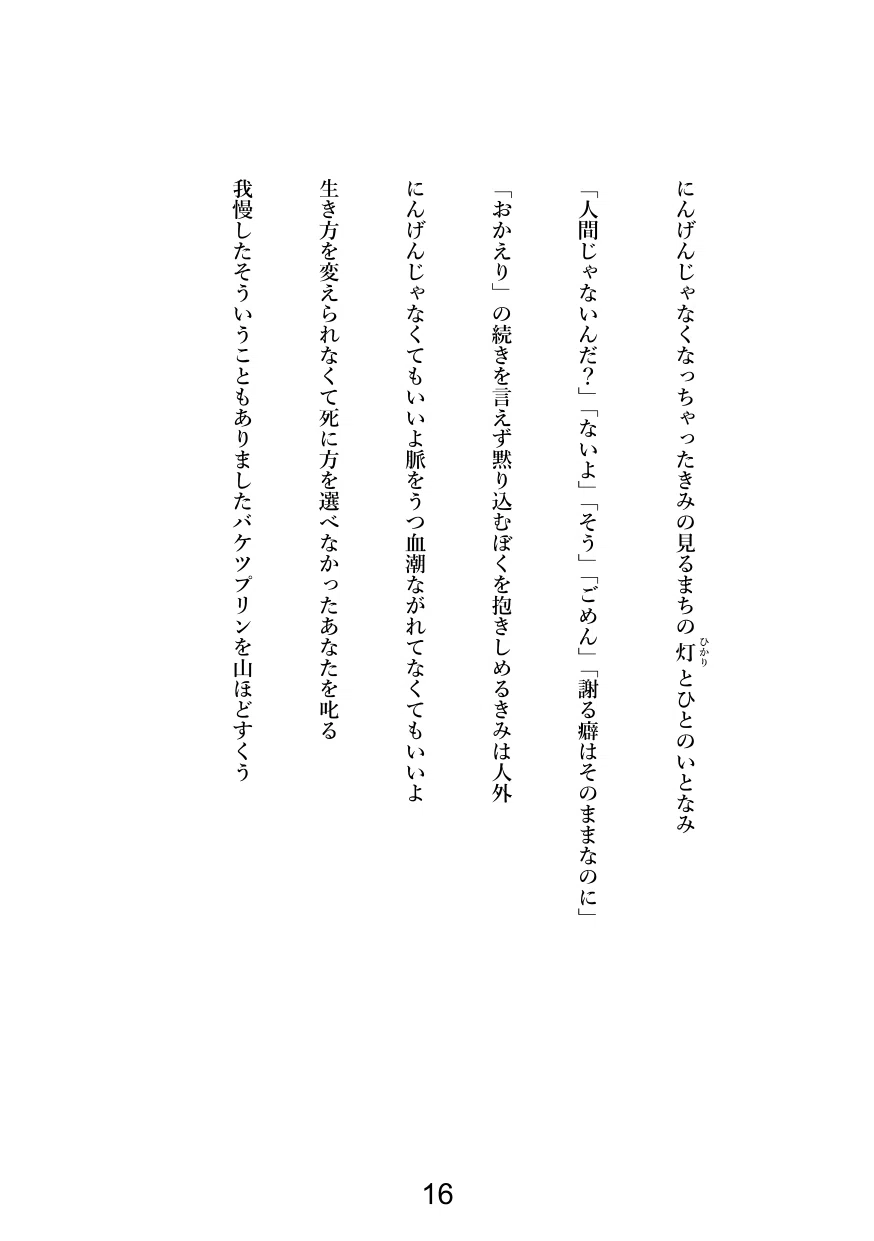 にんげんじゃなくなっちゃったきみの見るまちの灯とひとのいとなみ
ひかり
「人間じゃないんだ？」「ないよ」「そう」「ごめん」「謝る癖はそのままなのに」
「おかえり」の続きを言えず黙り込むぼくを抱きしめるきみは人外
にんげんじゃなくてもいいよ脈をうつ血潮ながれてなくてもいいよ
生き方を変えられなくて死に方を選べなかったあなたを叱る
我慢したそういうこともありましたバケツプリンを山ほどすくう
16